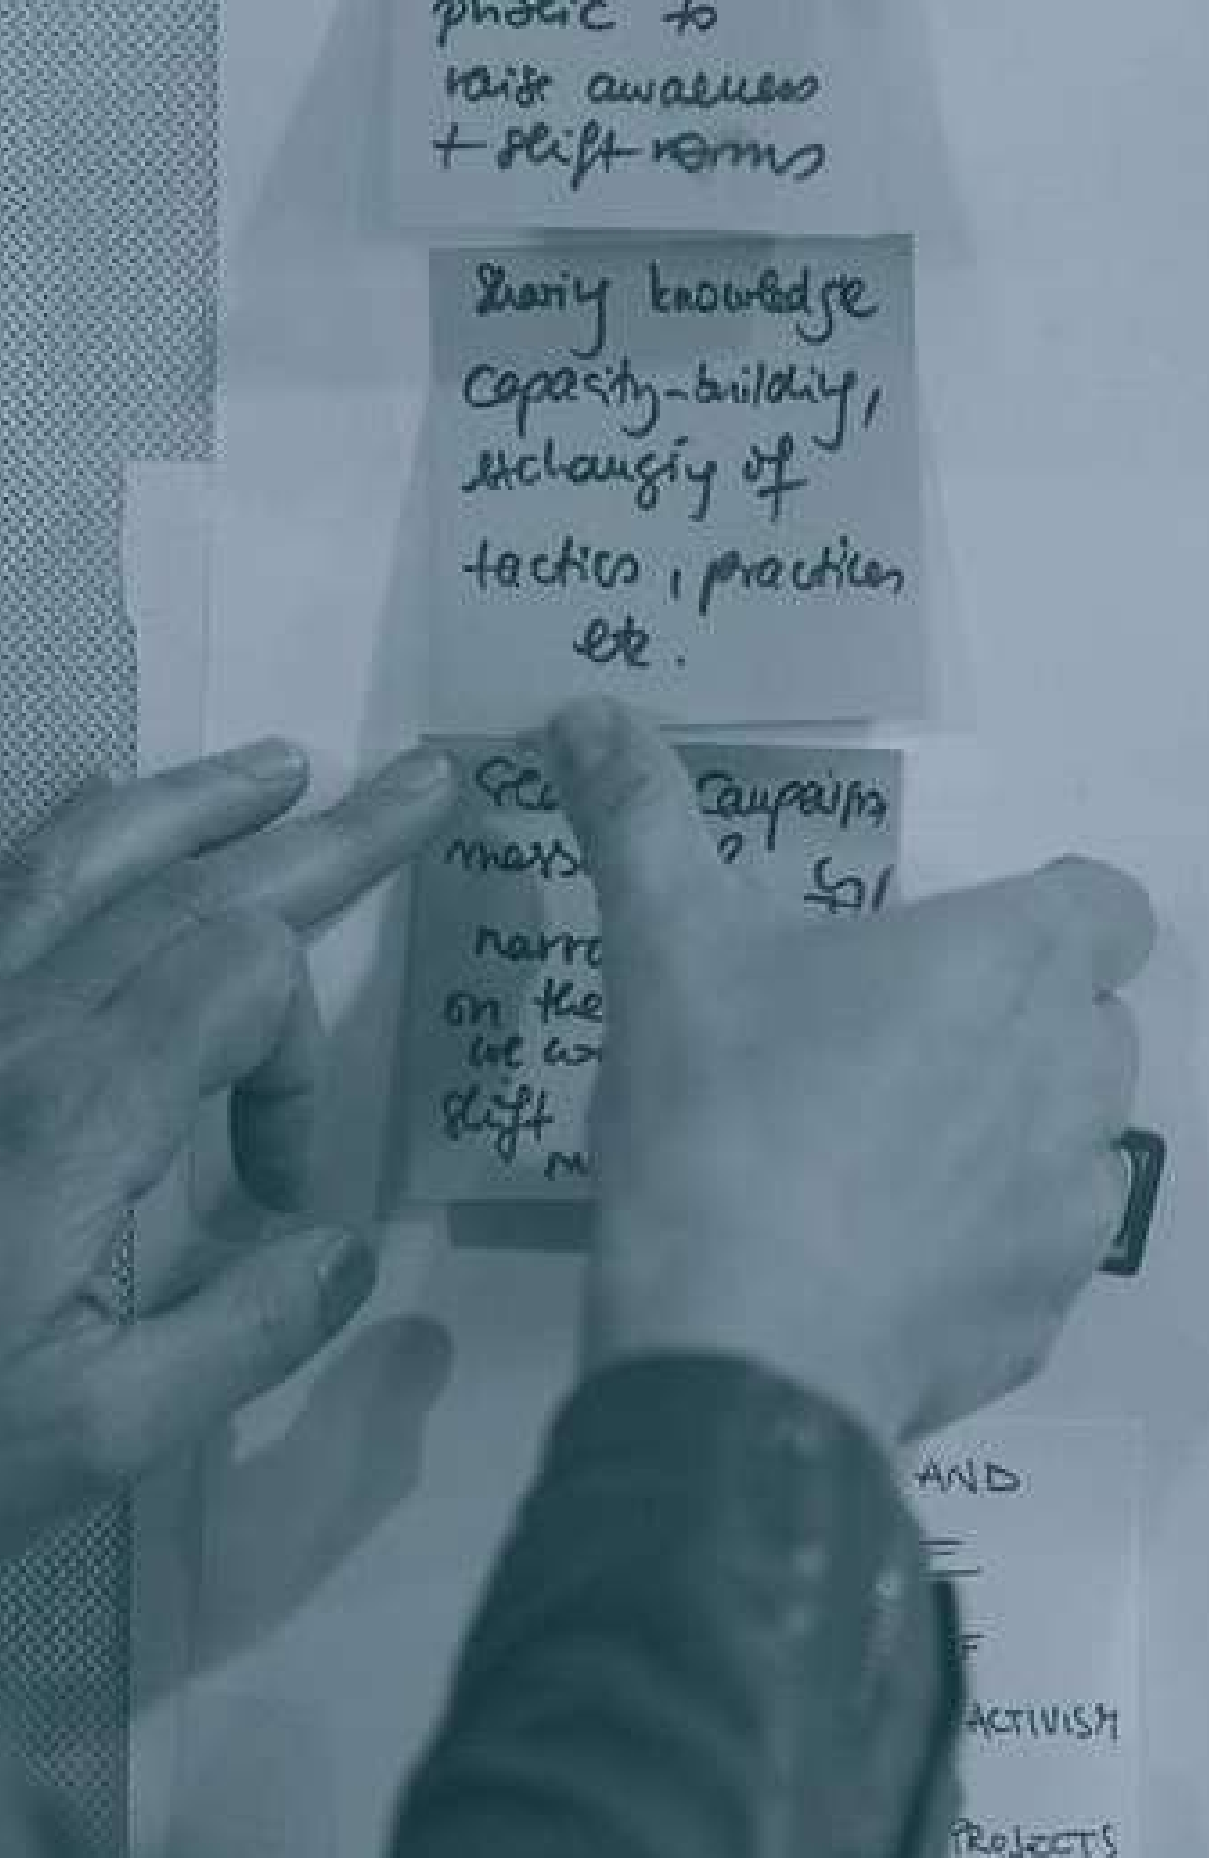 to
raise awareness
+ shift norms
Sharing knowledge
capacity-building,
exchanging of
tactics, practices
etc.
campaign
mass
on the
we
shift
AND
ACTIVISM
PROJECTS